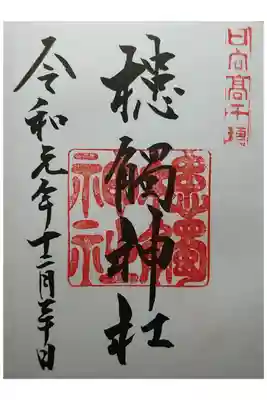 日向髙千穗
槵觸神社
槵觸神社
令和元年十二月 日